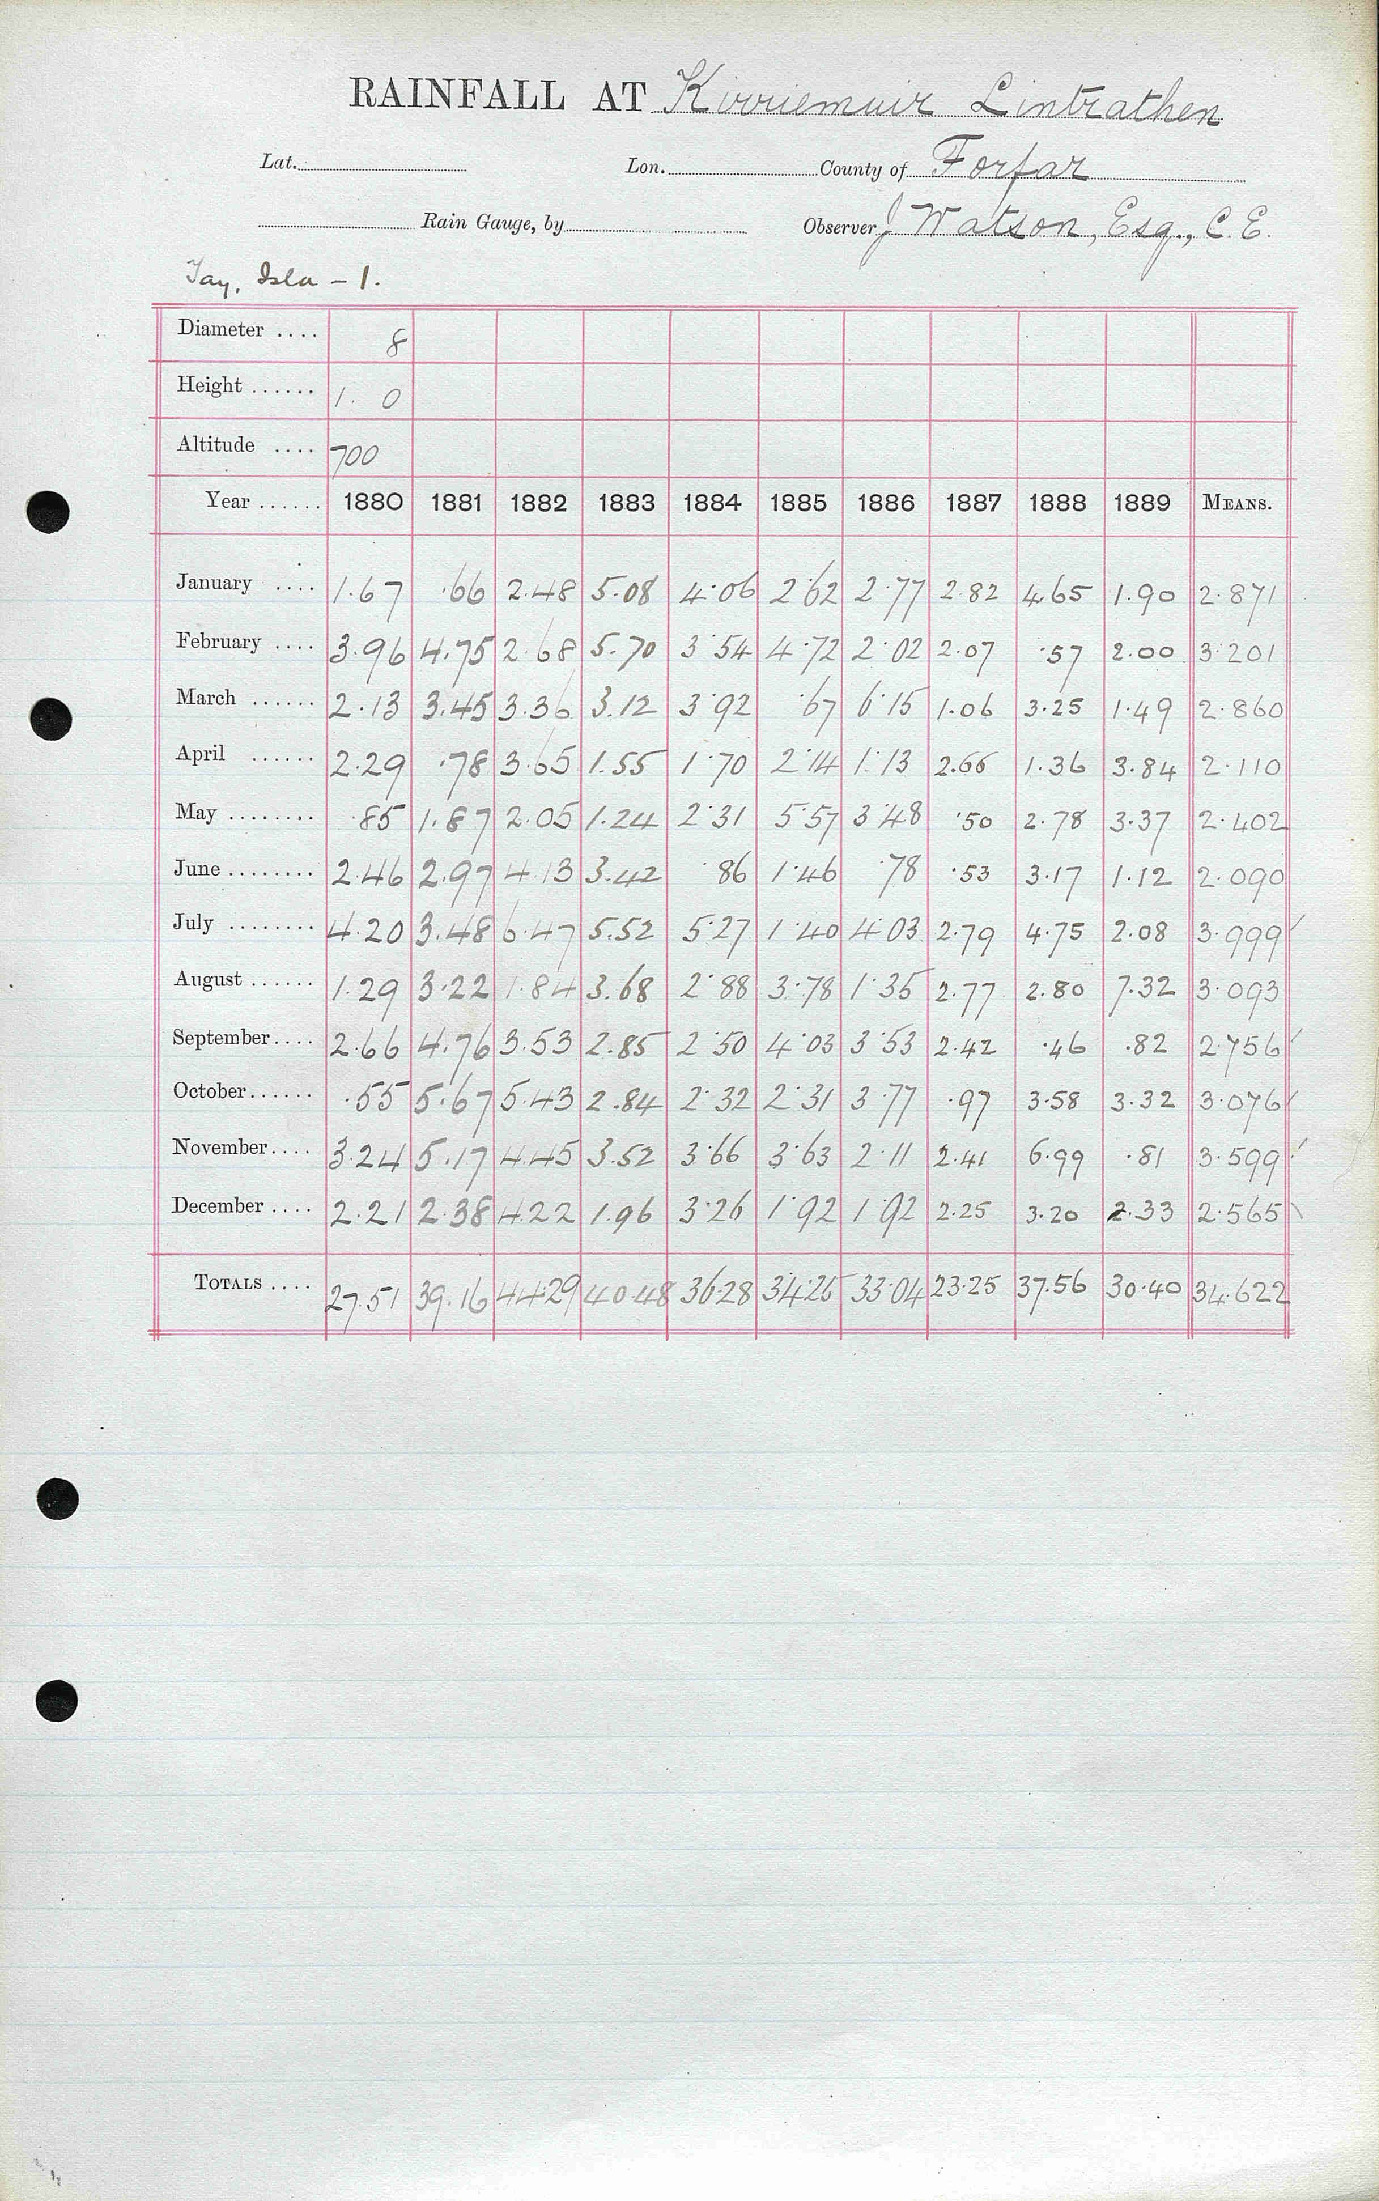 RAINFALL AT Kirriemuir Lintrathen
Lat. Lon. County of Forfar
Rain Gauge, by Observer J Watson, Esq., C.E.
Tay, Isla - 1.
Diameter .... 8
Height ...... 1. 0
Altitude .... 700
Year ...... 1880 1881 1882 1883 1884 1885 1886 1887 1888 1889 MEANS.
January .... 1.67 .66 2.48 5.08 4.06 2.62 2.77 2.82 4.65 1.90 2.871
February .... 3.96 4.75 2.68 5.70 3.54 4.72 2.02 2.07 .57 2.00 3.201
March ...... 2.13 3.45 3.36 3.12 3.92 .67 6.15 1.06 3.25 1.49 2.860
April ...... 2.29 .78 3.65 1.55 1.70 2.14 1.13 2.66 1.36 3.84 2.110
May ........ .85 1.87 2.05 1.24 2.31 5.57 3.48 .50 2.78 3.37 2.402
June ........ 2.46 2.97 4.13 3.42 .86 1.46 .78 .53 3.17 1.12 2.090
July ........ 4.20 3.48 6.47 5.52 5.27 1.40 4.03 2.79 4.75 2.08 3.999
August ...... 1.29 3.22 1.84 3.68 2.88 3.78 1.35 2.77 2.80 7.32 3.093
September .... 2.66 4.76 3.53 2.85 2.50 4.03 3.53 2.42 .46 .82 2.756
October ...... .55 5.67 5.43 2.84 2.32 2.31 3.77 .97 3.58 3.32 3.076
November .... 3.24 5.17 4.45 3.52 3.66 3.63 2.11 2.41 6.99 .81 3.599
December .... 2.21 2.38 4.22 1.96 3.26 1.92 1.92 2.25 3.20 2.33 2.565
TOTALS .... 27.51 39.16 44.29 40.48 36.28 34.25 33.04 23.25 37.56 30.40 34.622